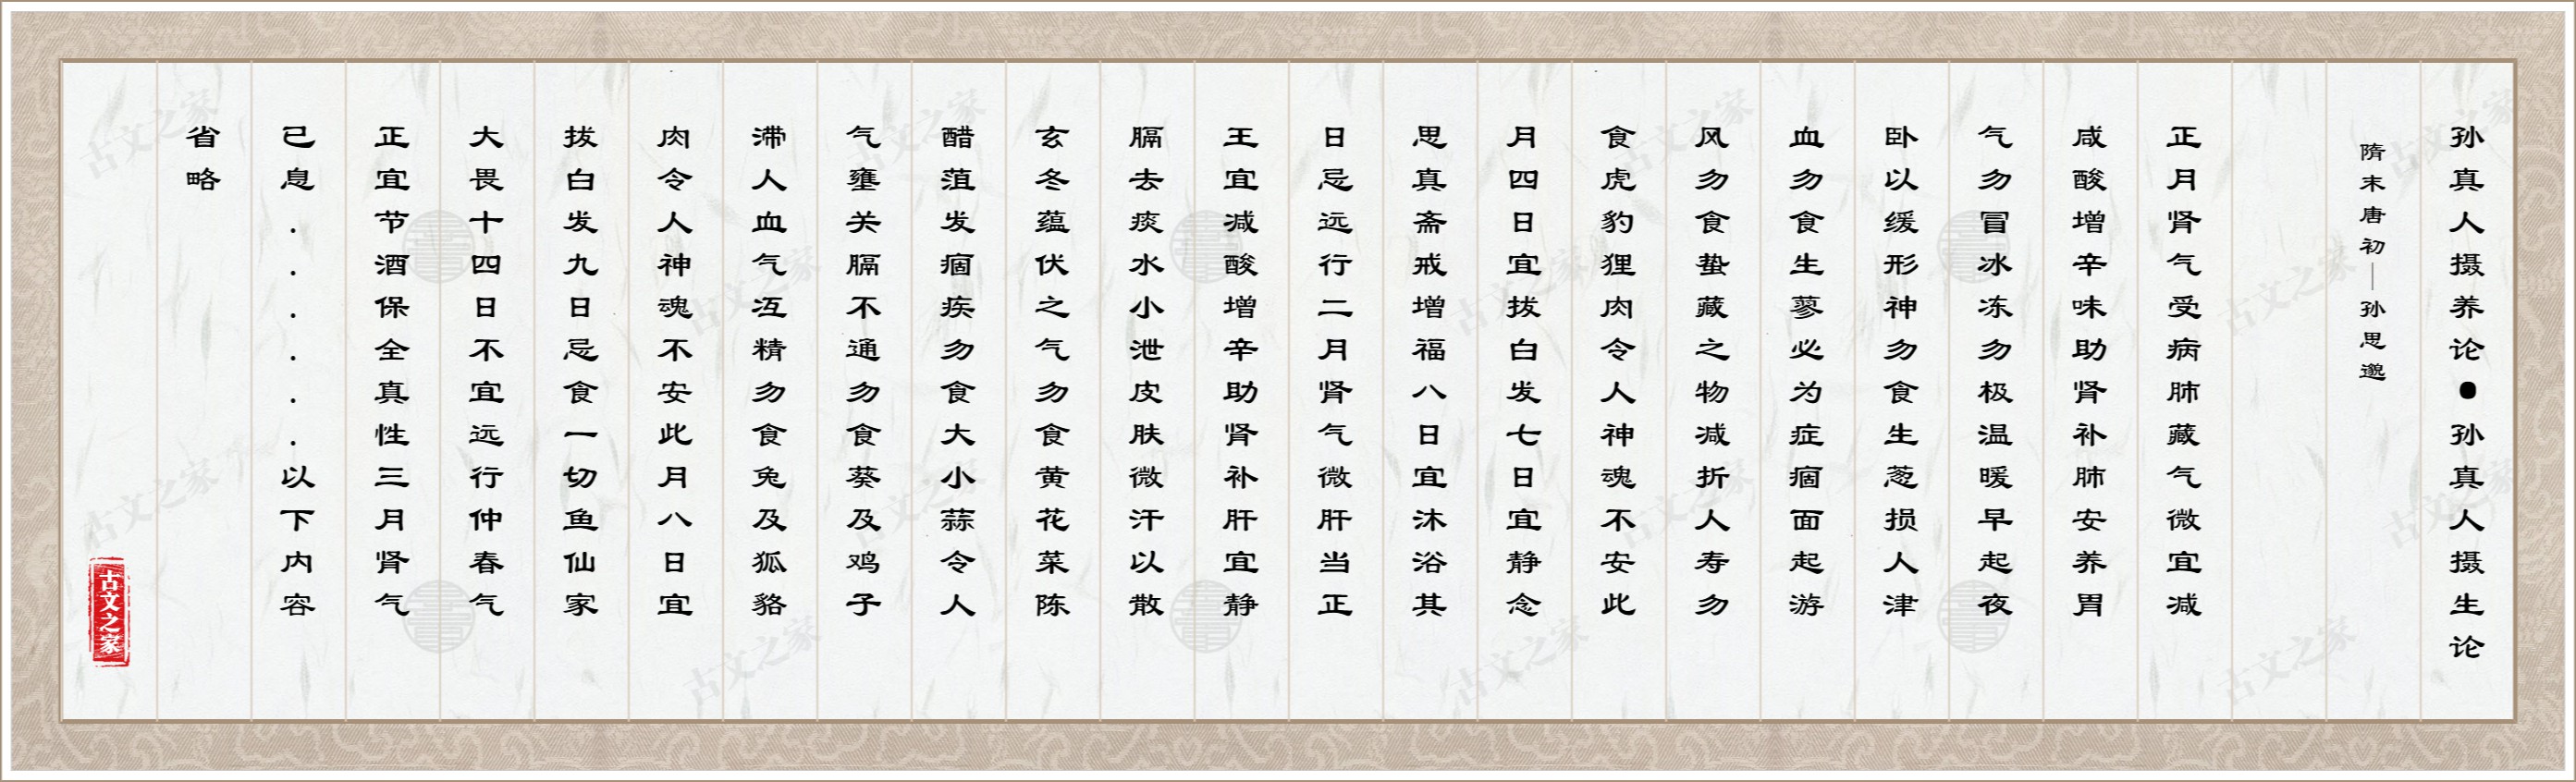 孙真人摄养论●孙真人摄生论
隋末唐初—孙思邈
正月肾气受病肺藏气微宜减
咸酸增辛味助肾补肺安养胃
气勿冒冰冻勿极温暖早起夜
卧以缓形神勿食生葱损人津
血勿食生蓼必为症痼面起游
风勿食蛰藏之物减折人寿勿
食虎豹狸肉令人神魂不安此
月四日宜拔白发七日宜静念
思真斋戒增福八日宜沐浴其
日忌远行二月肾气微肝当正
王宜减酸增辛助肾补肝宜静
膈去痰水小泄皮肤微汗以散
玄冬蕴伏之气勿食黄花菜陈
醋菹发痼疾勿食大小蒜令人
气壅关膈不通勿食葵及鸡子
滞人血气冱精勿食兔及狐貉
肉令人神魂不安此月八日宜
拔白发九日忌食一切鱼仙家
大畏十四日不宜远行仲春气
正宜节酒保全真性三月肾气
已息......以下内容
省略
古文之家